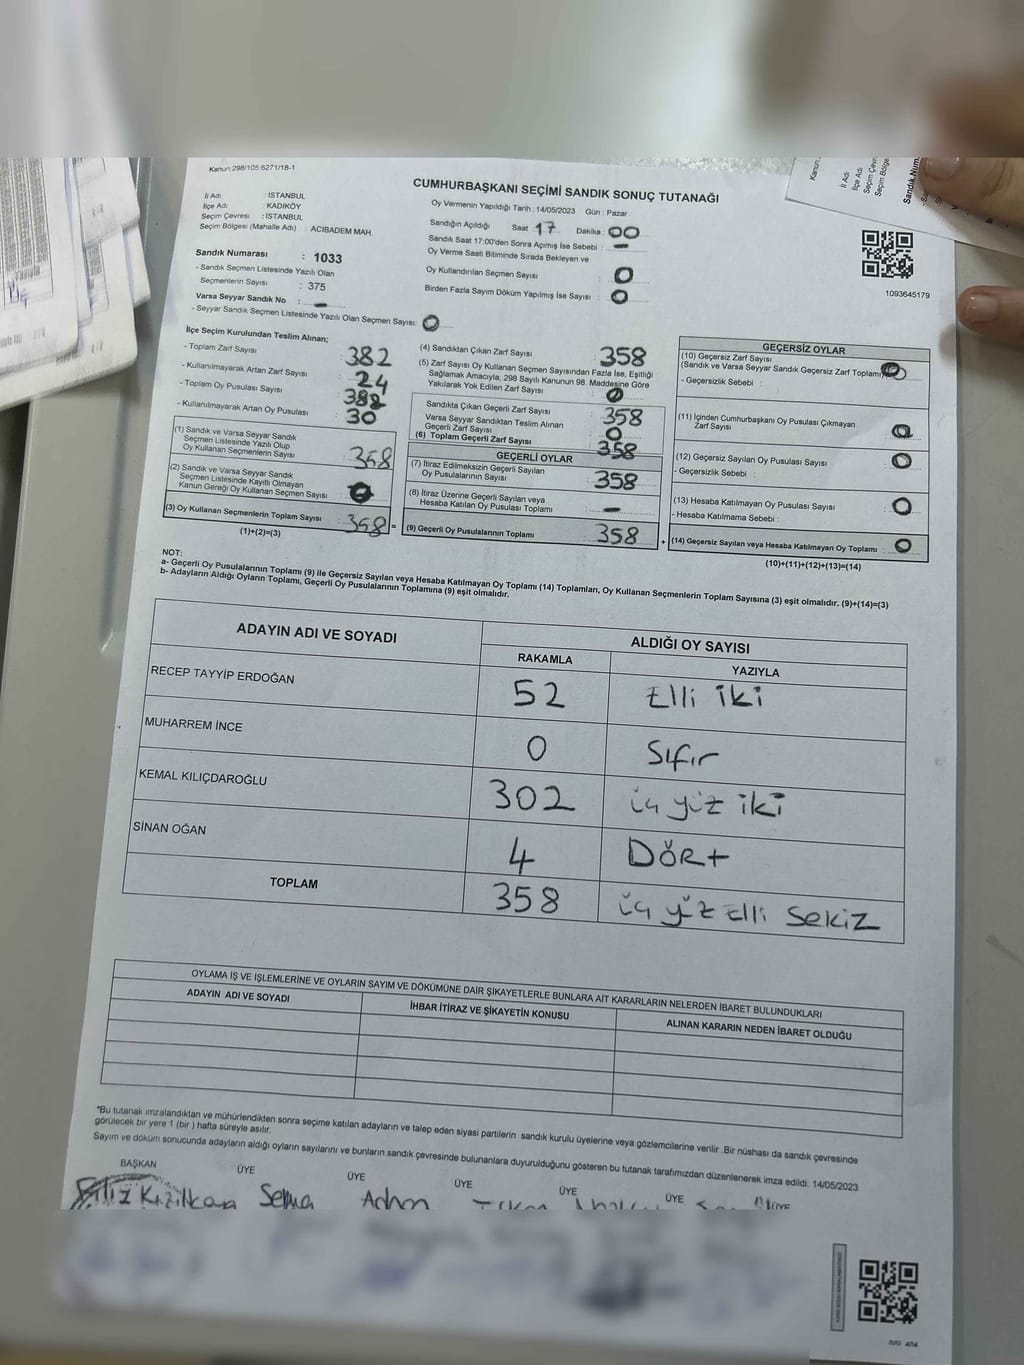 Kanun 298/105 6271/18-1
CUMHURBAŞKANI SEÇİMİ SANDIK SONUÇ TUTANAĞI
İl Adı : İSTANBUL
İlçe Adı : KADIKÖY
Seçim Çevresi : İSTANBUL
Seçim Bölgesi (Mahalle Adı) : ACIBADEM MAH.
Sandık Numarası : 1033
- Sandık Seçmen Listesinde Yazılı Olan
Seçmenlerin Sayısı : 375
Varsa Seyyar Sandık No : -
- Seyyar Sandık Seçmen Listesinde Yazılı Olan Seçmen Sayısı: 0
Oy Vermenin Yapıldığı Tarih : 14/05/2023 Gün : Pazar
Sandığın Açıldığı Saat 17 Dakika : 00
Sandık Saat 17.00'den Sonra Açımış İse Sebebi : -
Oy Verme Saati Bitiminde Sırada Bekleyen ve
Oy Kullandırılan Seçmen Sayısı : 0
Birden Fazla Sayım Döküm Yapılmış İse Sayısı : 0
1093645179
Kanun.
İl Adı
İlçe Adı
Seçim Çevr
Seçim Bölge
Sandık Num.
İlçe Seçim Kurulundan Teslim Alınan;
- Toplam Zarf Sayısı : 382
- Kullanılmayarak Artan Zarf Sayısı : 24
- Toplam Oy Pusulası Sayısı : 382
- Kullanılmayarak Artan Oy Pusulası : 30
(1) Sandık ve Varsa Seyyar Sandık
Seçmen Listesinde Yazılı Olup
Oy Kullanan Seçmenlerin Sayısı : 358
(2) Sandık ve Varsa Seyyar Sandık
Seçmen Listesinde Kayıtlı Olmayan
Kanun Gereği Oy Kullanan Seçmen Sayısı : 0
(3) Oy Kullanan Seçmenlerin Toplam Sayısı : 358 =
(1)+(2)=(3)
(4) Sandıktan Çıkan Zarf Sayısı : 358
(5) Zarf Sayısı Oy Kullanan Seçmen Sayısından Fazla İse, Eşitliği
Sağlamak Amacıyla, 298 Sayılı Kanunun 98. Maddesine Göre
Yakılarak Yok Edilen Zarf Sayısı : 0
Sandıkta Çıkan Geçerli Zarf Sayısı : 358
Varsa Seyyar Sandıktan Teslim Alınan
Geçerli Zarf Sayısı : 0
(6) Toplam Geçerli Zarf Sayısı : 358
GEÇERLİ OYLAR
(7) İtiraz Edilmeksizin Geçerli Sayılan
Oy Pusulalarının Sayısı : 358
(8) İtiraz Üzerine Geçerli Sayılan veya
Hesaba Katılan Oy Pusulası Toplamı : -
(9) Geçerli Oy Pusulalarının Toplamı : 358 +
GEÇERSİZ OYLAR
(10) Geçersiz Zarf Sayısı
(Sandık ve Varsa Seyyar Sandık Geçersiz Zarf Toplamı) : 0
- Geçersizlik Sebebi :
(11) İçinden Cumhurbaşkanı Oy Pusulası Çıkmayan
Zarf Sayısı : 0
(12) Geçersiz Sayılan Oy Pusulası Sayısı : 0
- Geçersizlik Sebebi :
(13) Hesaba Katılmayan Oy Pusulası Sayısı : 0
- Hesaba Katılmama Sebebi :
(14) Geçersiz Sayılan veya Hesaba Katılmayan Oy Toplamı : 0
(10)+(11)+(12)+(13)=(14)
NOT:
a- Geçerli Oy Pusulalarının Toplamı (9) ile Geçersiz Sayılan veya Hesaba Katılmayan Oy Toplamı (14) Toplamları, Oy Kullanan Seçmenlerin Toplam Sayısına (3) eşit olmalıdır. (9)+(14)=(3)
b- Adayların Aldığı Oyların Toplamı, Geçerli Oy Pusulalarının Toplamına (9) eşit olmalıdır.
ADAYIN ADI VE SOYADI ALDIĞI OY SAYISI
RAKAMLA YAZIYLA
RECEP TAYYİP ERDOĞAN 52 Elli iki
MUHARREM İNCE 0 Sıfır
KEMAL KILIÇDAROĞLU 302 üç yüz iki
SİNAN OĞAN 4 DÖRt
TOPLAM 358 üç yüz Elli Sekiz
OYLAMA İŞ VE İŞLEMLERİNE VE OYLARIN SAYIM VE DÖKÜMÜNE DAİR ŞİKAYETLERLE BUNLARA AİT KARARLARIN NELERDEN İBARET BULUNDUKLARI
ADAYIN ADI VE SOYADI İHBAR İTİRAZ VE ŞİKAYETİN KONUSU ALINAN KARARIN NEDEN İBARET OLDUĞU
*Bu tutanak imzalandıktan ve mühürlendikten sonra seçime katılan adayların ve talep eden siyasi partilerin sandık kurulu üyelerine veya gözlemcilerine verilir .Bir nüshası da sandık çevresinde
görülecek bir yere 1 (bir ) hafta süreyle asılır.
Sayım ve döküm sonucunda adayların aldığı oyların sayılarını ve bunların sandık çevresinde bulunanlara duyurulduğunu gösteren bu tutanak tarafımızdan düzenlenerek imza edildi. 14/05/2023
BAŞKAN ÜYE ÜYE ÜYE ÜYE ÜYE ÜYE
Filiz Kızılkan Sema